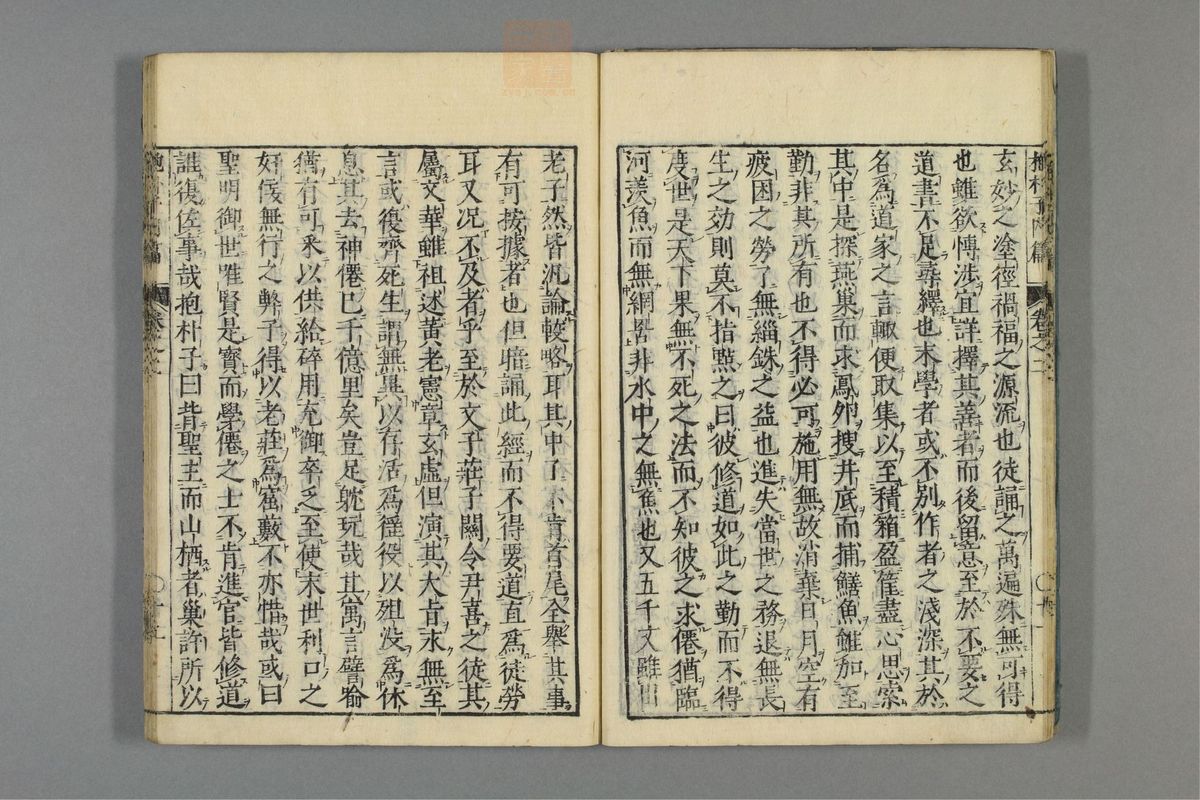 玄妙之塗徑禍福之源流也徒誦之萬遍殊無可得
也雖欲博涉宜詳擇其善者而後留意至於不要之
道書不足尋繹也末學者或不別作者之淺深其於
名爲道家之言輙便取集以至積箱盈筐盡心思索
其中是探燕巢而求鳳卵搜井底而捕鱔魚雖加至
勤非其所有也不得必可施用無故消棄日月空有
疲困之勞了無緇銖之益也進失當世之務退無長
生之効則莫不指㸃之曰彼修道如此之勤而不得
度世是天下果無不死之法而不知彼之求僊猶臨
河羡魚而無網罟非水中之無魚也又五千文雖出
老子然皆汎論較略耳其中了不肯首尾全舉其事
有可按據者也但暗誦此經而不得要道直爲徒勞
耳又况不及者乎至於文子莊子關令尹喜之徒其
屬文華雖祖述黃老憲章玄虛但演其大旨永無至
言或復齊死生謂無異以存活爲徭役以殂歿爲休
息其去神僊已千億里矣豈足躭玩哉其寓言譬喻
猶有可采以供給碎用充御卒乏至使末世利口之
奸佞無行之弊子得以老莊爲窟藪不亦惜哉或曰
聖明御世唯賢是寶而學僊之士不肯進官皆修道
誰復佐事哉抱朴子曰昔聖主而山栖者巢許所以